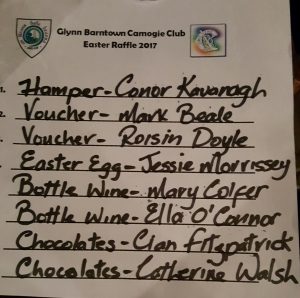 Glynn Barntown Camogie Club
Easter Raffle 2017
1. Hamper - Conor Kavanagh
2. Voucher - Mark Beale
Voucher - Roisin Doyle
Easter Egg - Jessie Morrissey
Bottle Wine - Mary Colfer
Bottle Wine - Ella O'Connor
Chocolates - Cian Fitzpatrick
Chocolates - Catherine Walsh